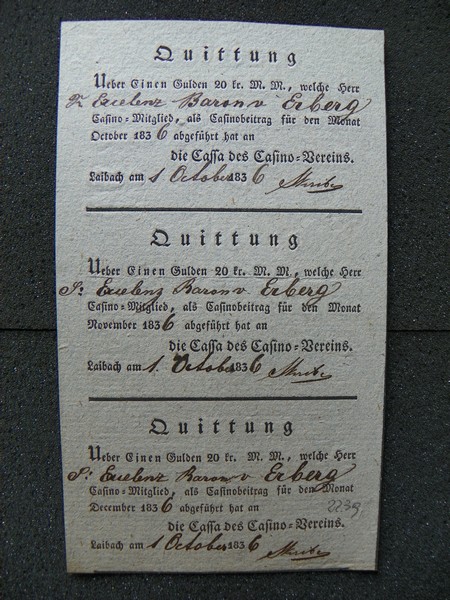 Quittung
Ueber Einen Gulden 20 kr. M. M., welche Herr
Sr Excelenz Baron v Erberg
Casino-Mitglied, als Casinobeitrag für den Monat
October 1836 abgeführt hat an
die Cassa des Casino-Vereins.
Laibach am 1 October 1836
Quittung
Ueber Einen Gulden 20 kr. M. M., welche Herr
Sr Excelenz Baron v Erberg
Casino-Mitglied, als Casinobeitrag für den Monat
November 1836 abgeführt hat an
die Cassa des Casino-Vereins.
Laibach am 1. October 1836
Quittung
Ueber Einen Gulden 20 kr. M. M., welche Herr
Sr Excelenz Baron v Erberg
Casino-Mitglied, als Casinobeitrag für den Monat
December 1836 abgeführt hat an
2239
die Cassa des Casino-Vereins.
Laibach am 1 October 1836